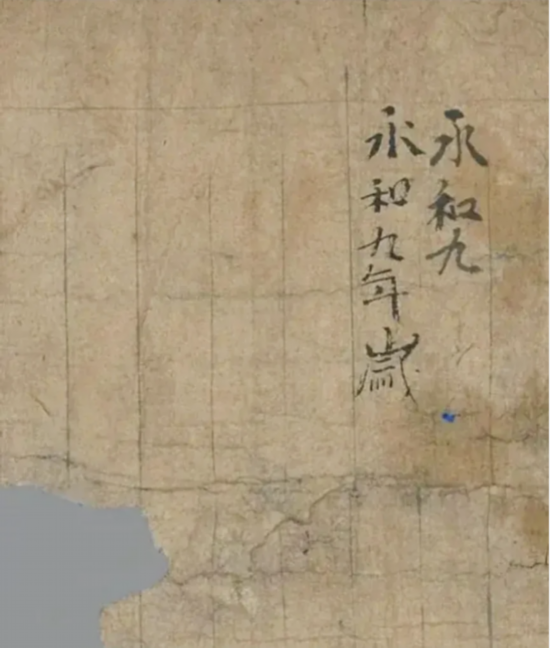 永和九
永和九年歲